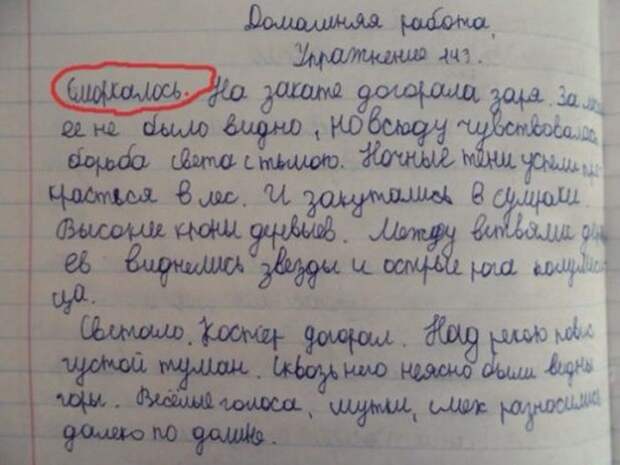 Домашняя работа.
Упражнение 143.
Сморкалось. На закате догорала заря. За
ее не было видно, но всюду чувствовалась
борьба света с тьмою. Ночные тени успели про
красться в лес. И закутались в сумраки.
Высокие кроны деревьев. Между ветвями дер
ев виднелись звезды и острые рога полумеся
ца.
Светало. Костёр догорал. Над рекою повис
густой туман. Сквозь него неясно были видны
горы. Весёлые голоса, шутки, смех разносились
далеко по долине.